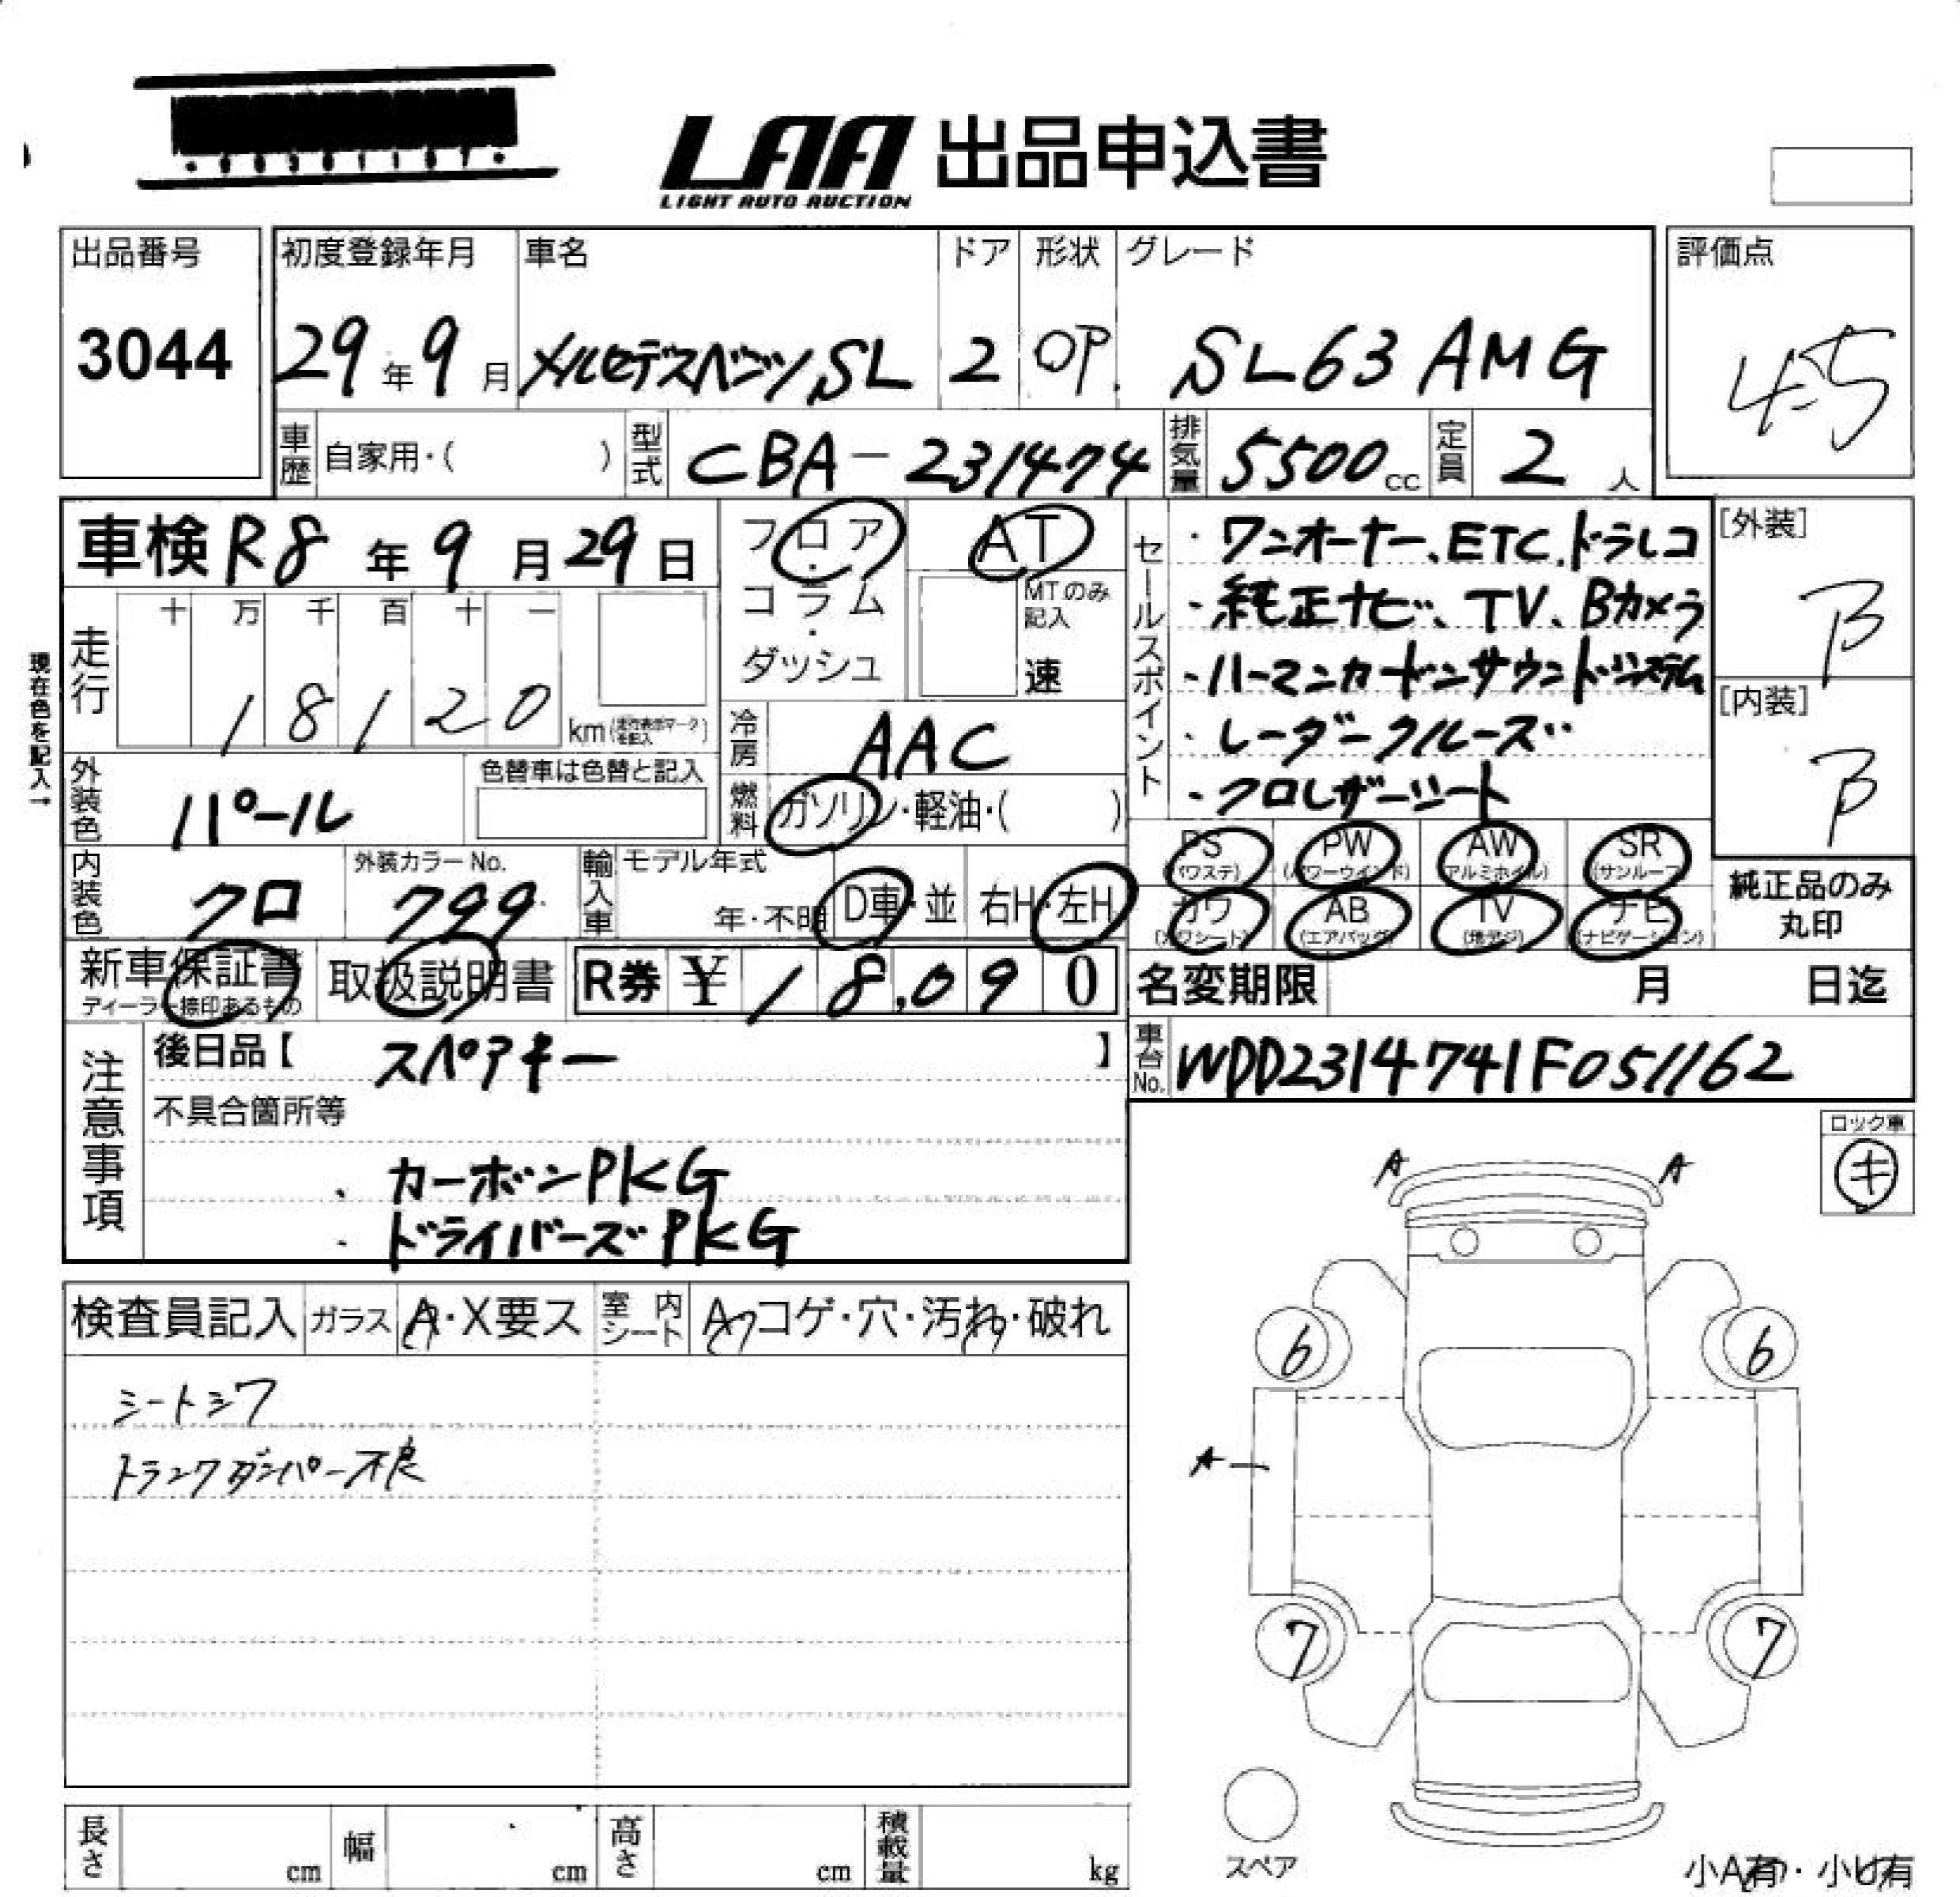 LAA 出品申込書
LIGHT AUTO AUCTION
出品番号
3044
初度登録年月
29年9月
車名
メルセデスベンツSL
ドア
2
形状
OP
グレード
SL63 AMG
評価点
4.5
車歴 自家用・( )
型式 CBA-231474
排気量 5500cc
定員 2人
車検 R8年9月29日
フロア・コラム・ダッシュ
AT
MTのみ記入
速
セールスポイント
・ワンオーナー、ETC、ドラレコ
・純正ナビ、TV、Bカメラ
・ハーマンカードンサウンドシステム
・レーダークルーズ
・クロレザーシート
[外装]
B
[内装]
B
現在色を記入→
走行
十 万 千 百 十 一
18120 km
冷房 AAC
外装色 パール
色替車は色替と記入
燃料 ガソリン・軽油・( )
内装色 クロ
外装カラーNo.
799
輸入車
モデル年式
年・不明
D車・並
右H・左H
PS (パワステ)
PW (パワーウインド)
AW (アルミホイル)
SR (サンルーフ)
カワ (カワシート)
AB (エアバッグ)
TV (地デジ)
ナビ (ナビゲーション)
純正品のみ
丸印
新車保証書
ディーラー捺印あるもの
取扱説明書
R券 ¥18,090
名変期限 月 日迄
注意事項
後日品【 スペアキー 】
車台No. WDD2314741F051162
不具合箇所等
・カーボンPKG
・ドライバーズPKG
ロック車
キ
検査員記入
ガラス A・X要ス
室内シート
コゲ・穴・汚れ・破れ
シートシワ
トランクダンパー不良
A A
6 6
A
7 7
スペア
長さ cm
幅 cm
高さ cm
積載量 kg
小A有・小U有